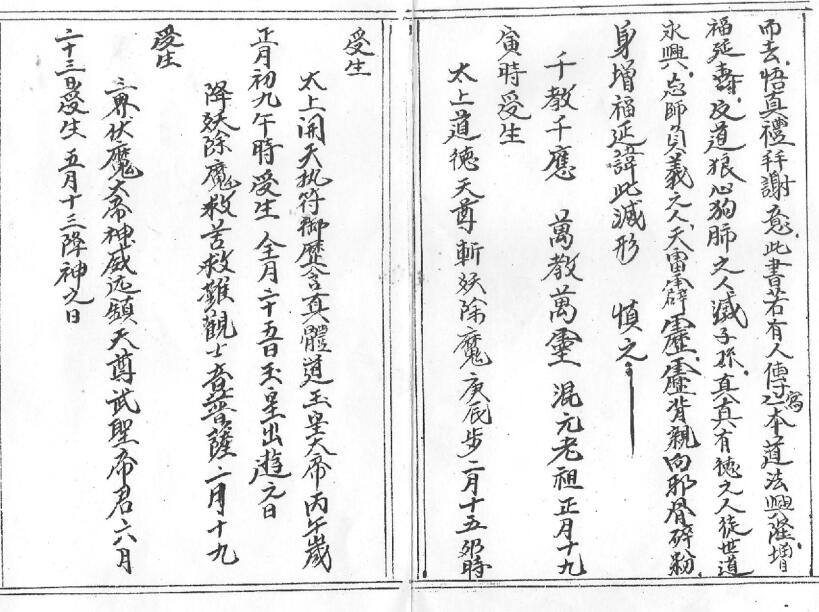 而去悟真禮拜謝意此書若有人傳寫一本道法興隆增
福延壽反道狼心狗肺之人滅子孫真真有德之人徒世道
永興忘師負義之人天雷霹靂靂背親向邪骨碎粉
身增福延諱此滅形 慎之
千教千應 萬教萬靈 混元老祖正月十九
寅時受生
太上道德天尊斬妖除魔庚辰步二月十五卯時
受生
太上開天执符御歷含真體道玉皇大帝丙午歲
正月初九午時受生 全月二十五日玉皇出遊之日
降妖除魔救苦救難觀士音菩薩二月十九
受生
三界伏魔大帝神威远鎮天尊武聖帝君六月
二十三日受生 五月十三降神之日